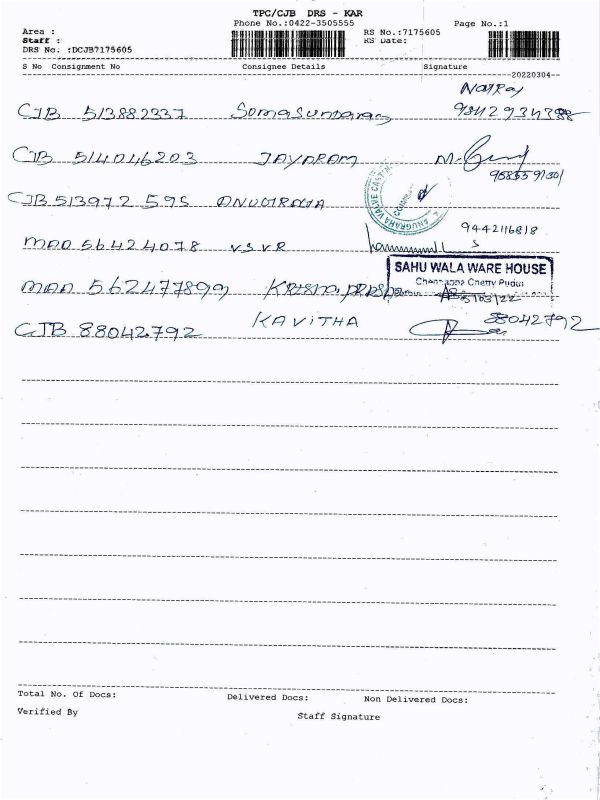 TPC/CJB DRS - KAR
Phone No.:0422-3505555
Page No.:1
Area :
RS No.:7175605
Staff :
RS Date:
DRS No. :DCJB7175605
S No Consignment No Consignee Details Signature
--20220304--
Natraj
CJB 513882337 Somasundaram
CJB 514046203 JAYARAM
CJB 513972 595 ANUGRAHA
ANUGRAHA VALVE CAST
9442116818
MAA 56424078 VSVR
SAHU WALA WARE HOUSE
MAA 562477899
5/03/22
CJB 88042792 KAVITHA 88042792
Total No. Of Docs: Delivered Docs: Non Delivered Docs:
Verified By Staff Signature